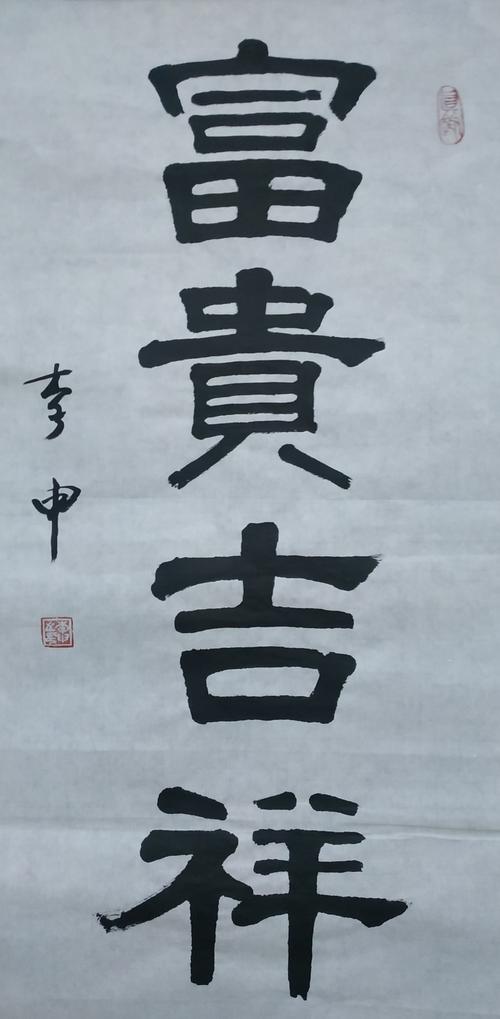 富貴吉祥
李申